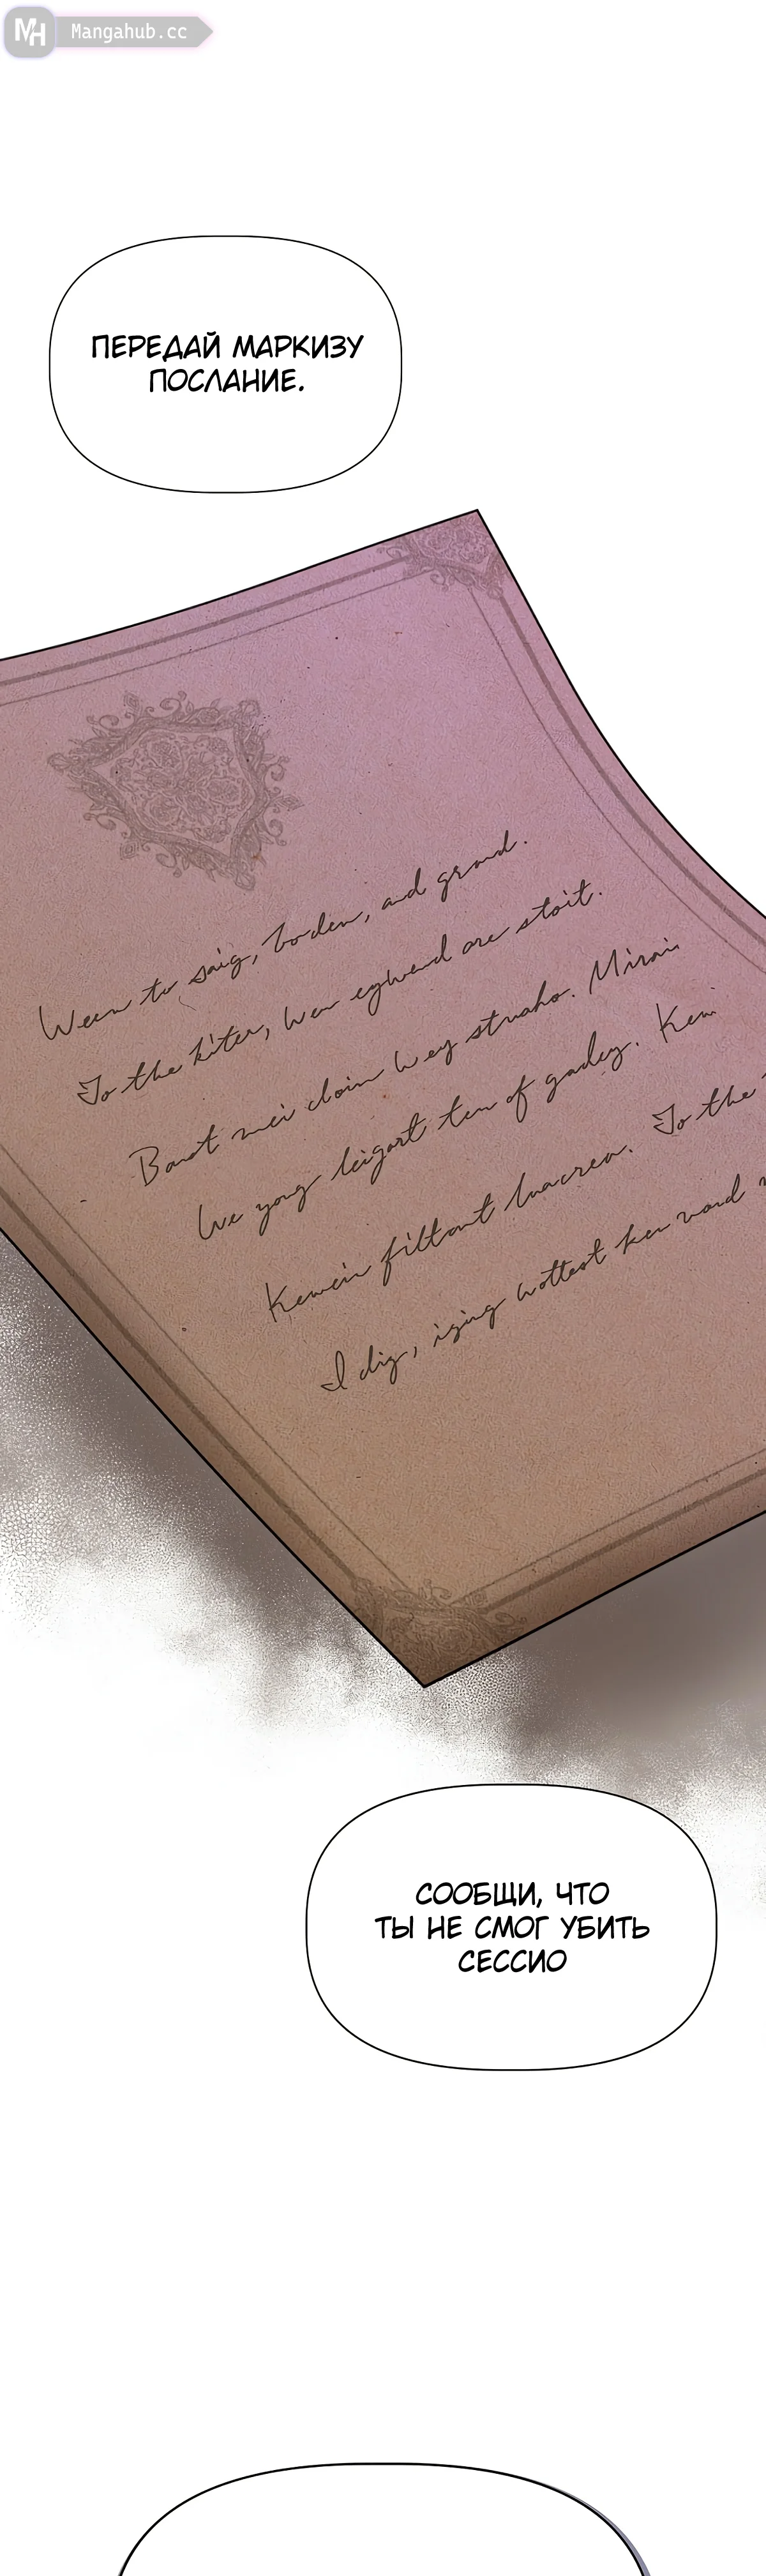 MH Mangahub.cc
ПЕРЕДАЙ МАРКИЗУ
ПОСЛАНИЕ.
Ween to saig, boden, and grond.
To the kiter, wen eywend are stoit.
Banot mei cloin wey struaho. Mirai
We yong leigart ten of gadey. Ken
Kewein filtont luacrea. To the
I dig, iging wottest ken
СООБЩИ, ЧТО
ТЫ НЕ СМОГ УБИТЬ
СЕССИО